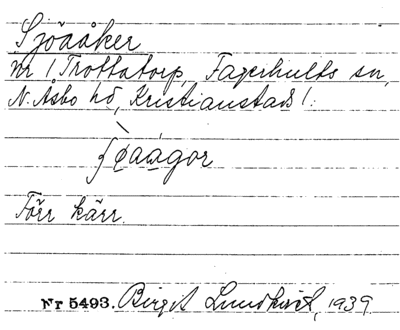 Sjöaåker
nr 1 Trottatorp, Fagerhults sn,
N. Åsbo hd, Kristianstads l.
ʃøaágor
Förr kärr.
Nr 5493. Birgit Lundkvist, 1939